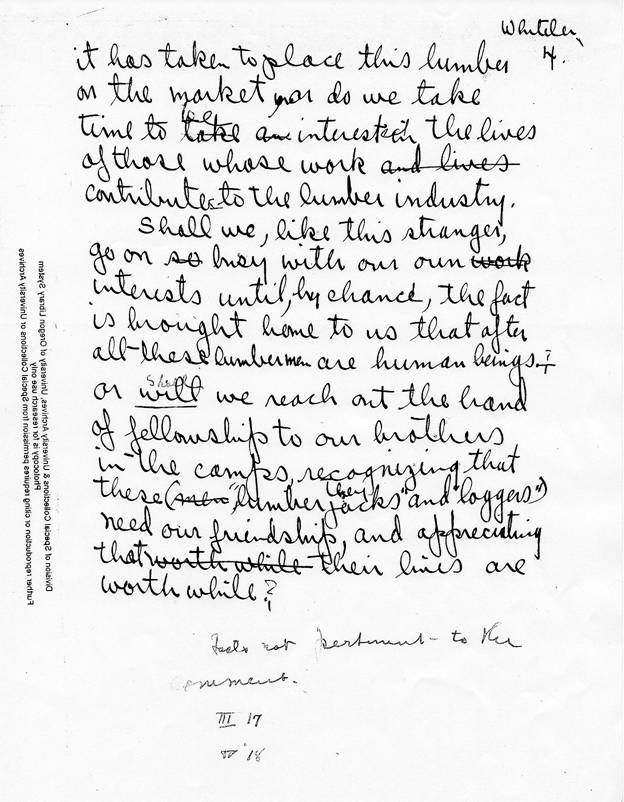 Whiteley
4.
it has taken to place this lumber
on the market, nor do we take
time to be take an interested in the lives
of those whose work and lives
contributes to the lumber industry.
Shall we, like this stranger,
go on so busy with our own work
interests until, by chance, the fact
is brought home to us that after
all these lumbermen are human beings.
or shall will we reach out the hand
of fellowship to our brothers
in the camps, recognizing that
these (men "lumber jacks" and "loggers") they
need our friendship, and appreciating
that worth while their lives are
worth while?
not pertinent to the
III 17
18
Further reproduction or citing requires permission from Special Collections or University Archives
Photocopy is for research use only
Division of Special Collections & University Archives, University of Oregon Library System